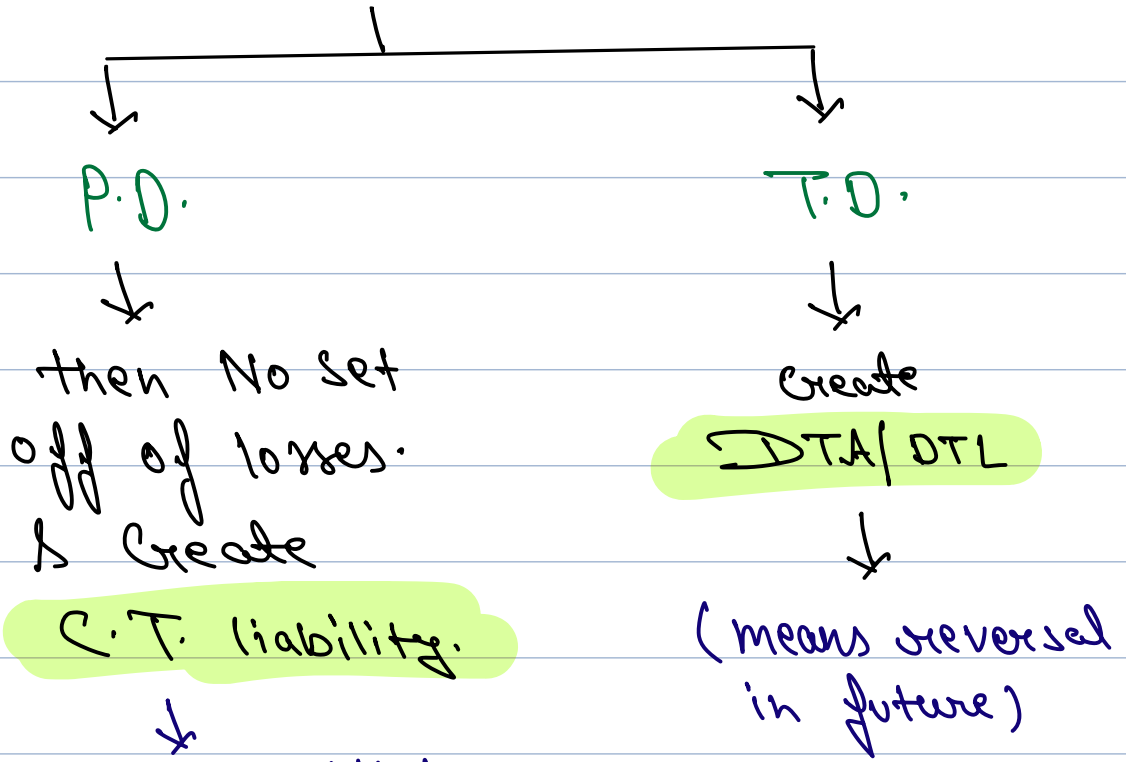 P.D.
T.D.
then No set
off of losses.
& Create
C.T. liability.
create
DTA/DTL
(means reversal
in future)